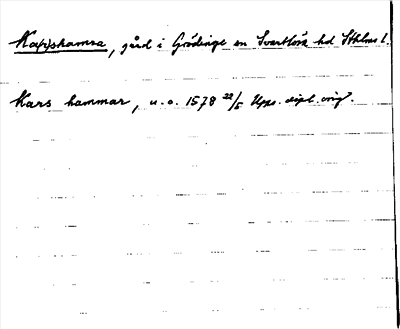 Kappshamra, gård i Grödinge sn Svartlösa hd Sthlms l.
Kars hammar, u.o. 1578 22/5 Upps. dipl. orig.